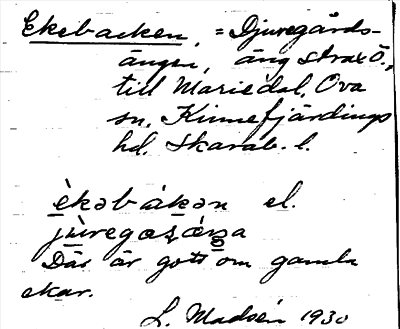 Ekebacken, = Djuregårds-
ängen, äng strax Ö.,
till Mariedal, Ova
sn, Kinnefjärdings
hd. Skarab. l.
èkəbákən el.
jùregaṣǽṇa
Där är gott om gamla
ekar.
L. Madsén 1930